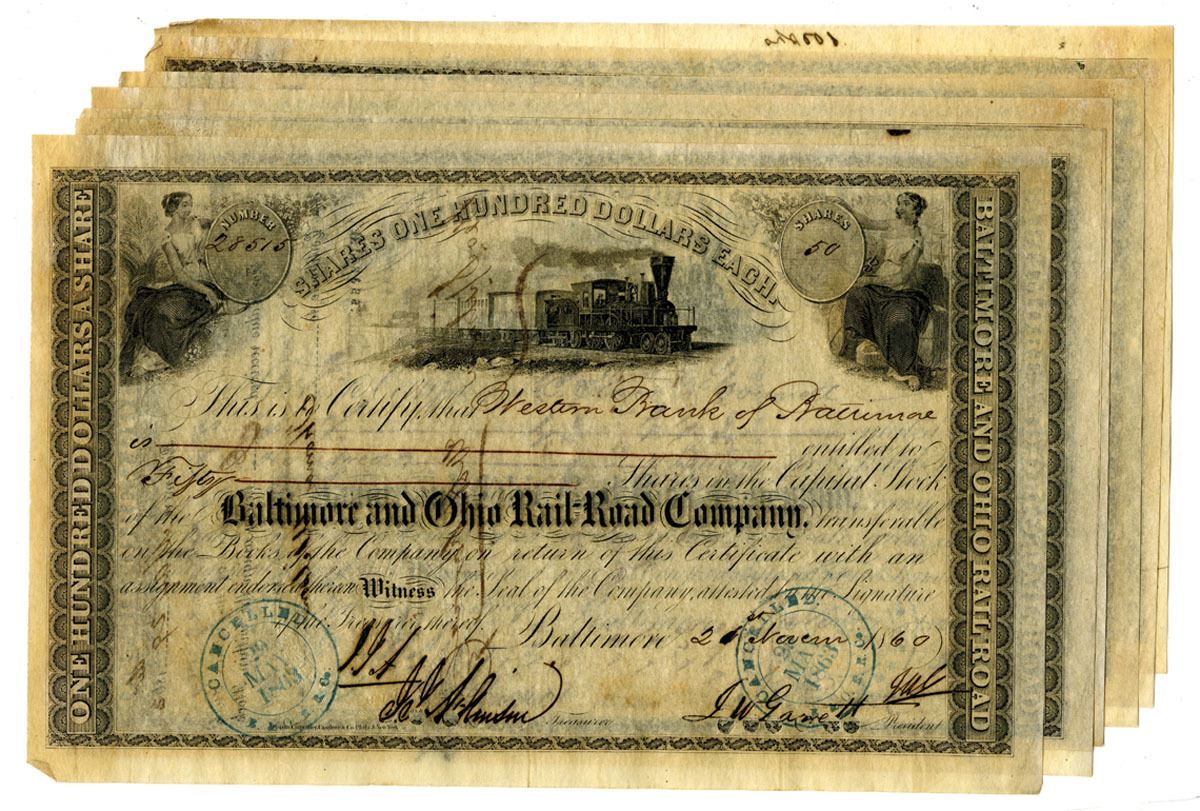 100 Shs
ONE HUNDRED DOLLARS A SHARE
NUMBER
28515
SHARES ONE HUNDRED DOLLARS EACH.
SHARES
50
BALTIMORE AND OHIO RAIL-ROAD
This is to Certify, that Western Bank of Baltimore
is entitled to
Fifty Shares in the Capital Stock
of the Baltimore and Ohio Rail-Road Company. transferable
on the Books of the Company on return of this Certificate with an
assignment endorsed thereon Witness the Seal of the Company, attested by the Signature
of the Treasurer thereof
Baltimore 2 Novem 1860
CANCELLED
MAY
1863
& Co.
CANCELLED
MAY
1863
Treasurer
J W Garrett
President